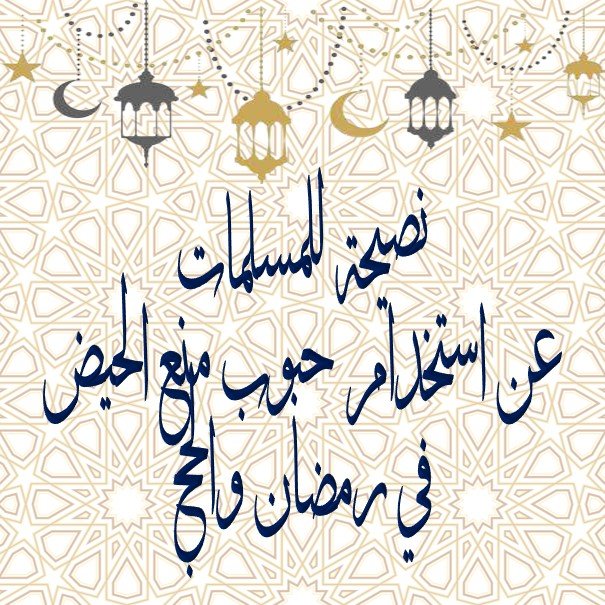 نصيحة للمسلمات
عن استخدام حبوب منع الحيض
في رمضان والحج